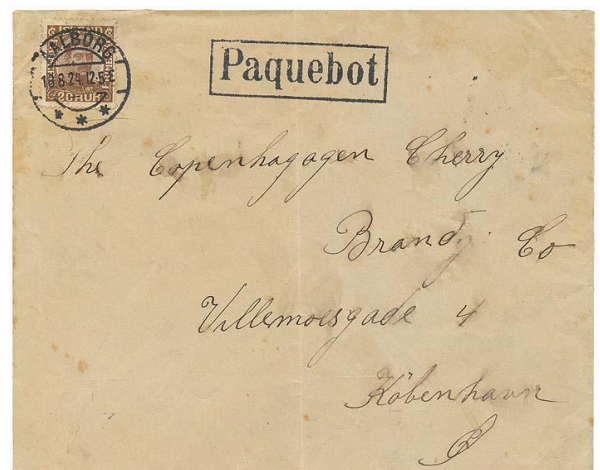 AALBORG
18.8.24. 12.5 E
20 AUR
Paquebot
The Copenhagagen Cherry
Brandy. Co
Villemoesgade 4
København